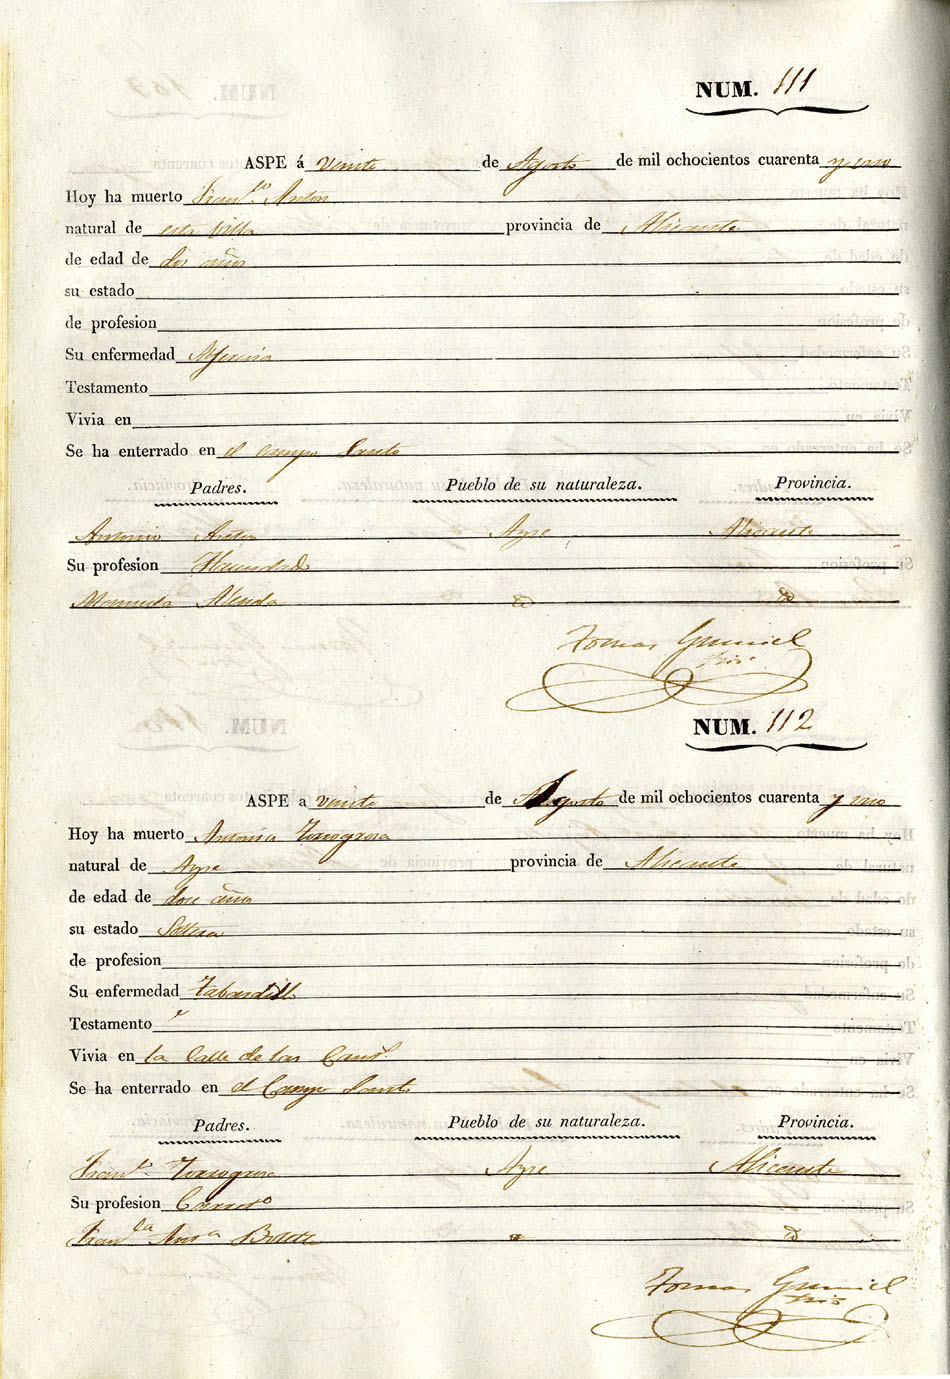 NUM. 111
ASPE á veinte de Agosto de mil ochocientos cuarenta y uno
Hoy ha muerto Franco. Anton
natural de esta villa provincia de Alicante
de edad de dos años
su estado
de profesion
Su enfermedad
Testamento
Vivia en
Se ha enterrado en el Campo Santo
Padres. Pueblo de su naturaleza. Provincia.
Antonio Anton Aspe Alicante
Su profesion
Manuela
NUM. 112
ASPE a veinte de Agosto de mil ochocientos cuarenta y uno
Hoy ha muerto Antonia Torregrosa
natural de Aspe provincia de Alicante
de edad de dose años
su estado Soltera
de profesion
Su enfermedad Tabardillo
Testamento
Vivia en la Calle de las
Se ha enterrado en el Campo Santo
Padres. Pueblo de su naturaleza. Provincia.
Torregrosa Aspe Alicante
Su profesion
Franca
Tomas